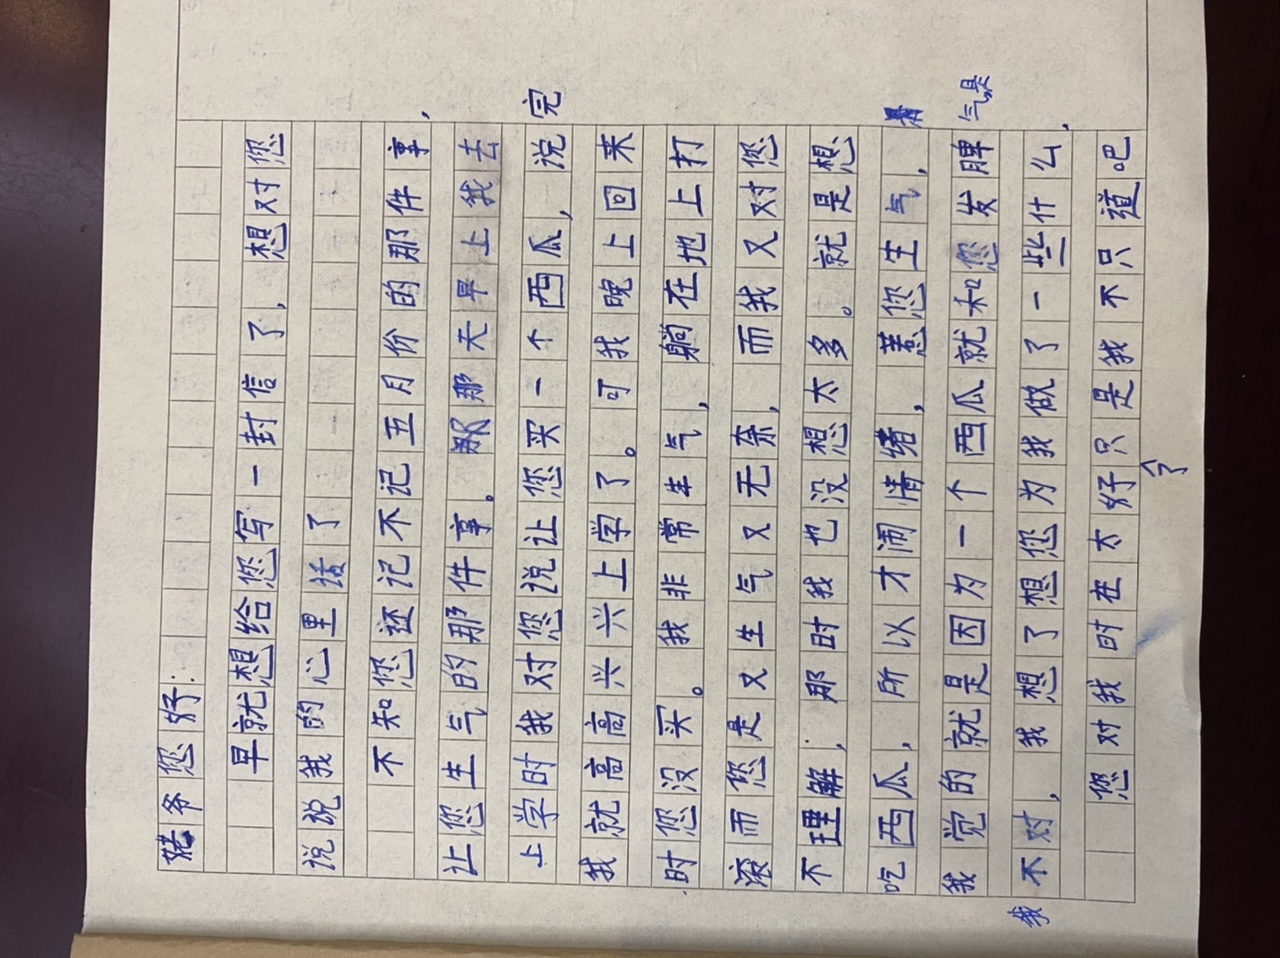 姥爷您好：
早就想给您写一封信了，想对您
说说我的心里话了
不知您还记不记五月份的那件事，
让您生气的那件事。那天早上我去
上学时我对您说让您买一个西瓜，说完
我就高高兴兴上学了。可我晚上回来
时您没买。我非常生气，躺在地上打
滚而您是又生气又无奈，而我又对您
不理解，那时我也没想太多。就是想
吃西瓜，所以才闹情绪，惹您生气，
我觉的就是因为一个西瓜就和您发脾气是
我不对，我想了想您为我做了一些什么，
您对我时在太好了只是我不只道吧